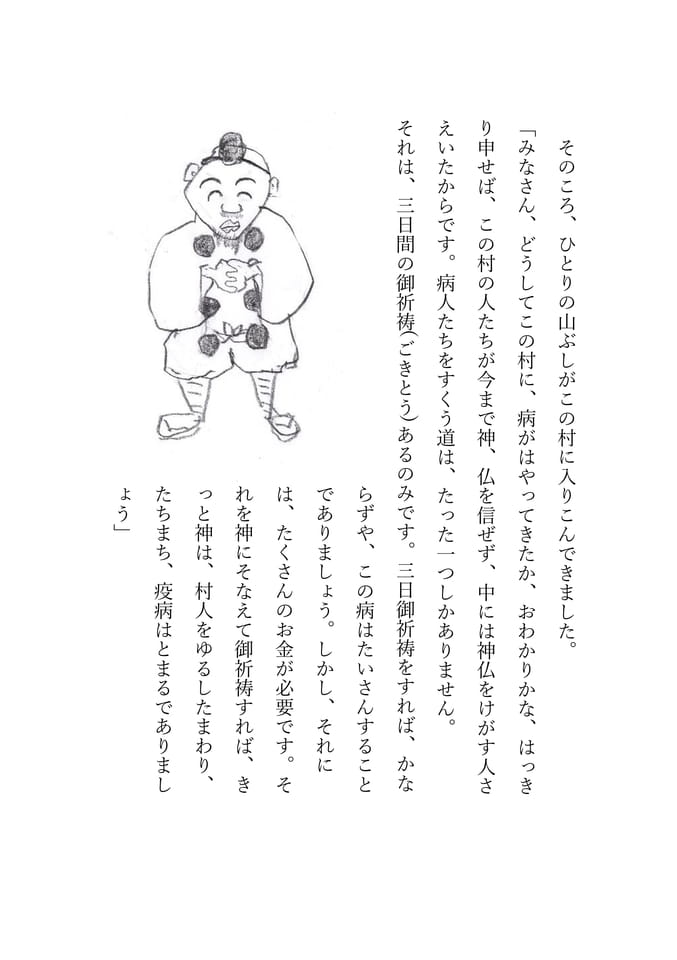 そのころ、ひとりの山ぶしがこの村に入りこんできました。
「みなさん、どうしてこの村に、病がはやってきたか、おわかりかな、はっき
り申せば、この村の人たちが今まで神、仏を信ぜず、中には神仏をけがす人さ
えいたからです。病人たちをすくう道は、たった一つしかありません。
それは、三日間の御祈祷(ごきとう)あるのみです。三日御祈祷をすれば、かな
らずや、この病はたいさんすること
でありましょう。しかし、それに
は、たくさんのお金が必要です。そ
れを神にそなえて御祈祷すれば、き
っと神は、村人をゆるしたまわり、
たちまち、疫病はとまるでありまし
ょう」